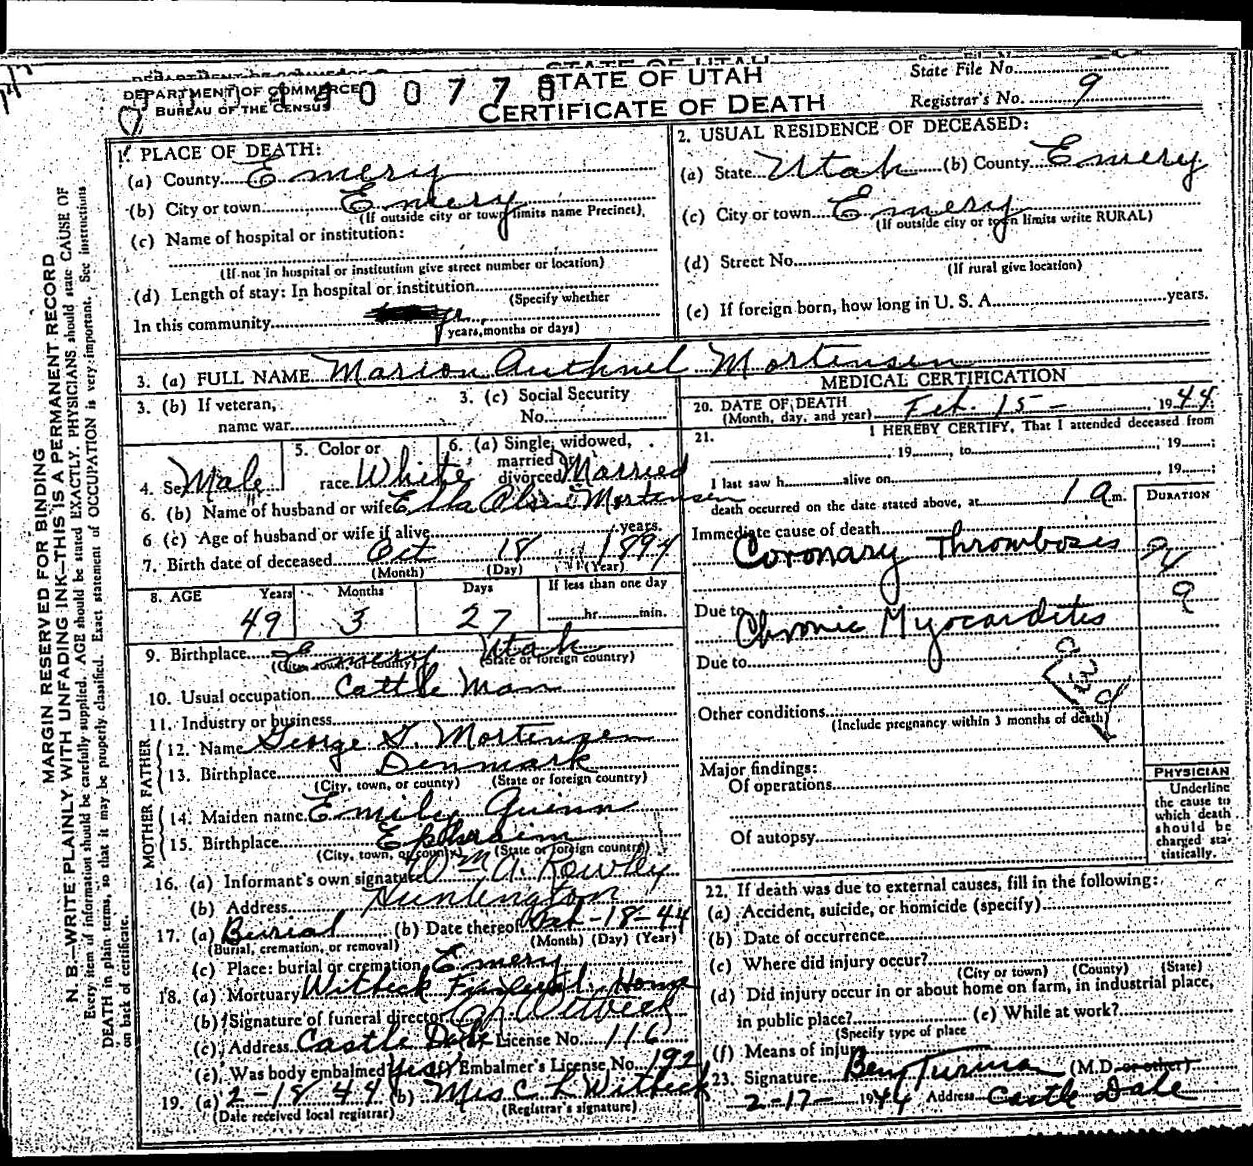 STATE OF UTAH
DEPARTMENT OF COMMERCE
BUREAU OF THE CENSUS
00778
STATE OF UTAH
CERTIFICATE OF DEATH
State File No.
Registrar's No. 9
MARGIN RESERVED FOR BINDING
N. B.—WRITE PLAINLY WITH UNFADING INK—THIS IS A PERMANENT RECORD
Every item of information should be carefully supplied. AGE should be stated EXACTLY. PHYSICIANS should state CAUSE OF
DEATH in plain terms, so that it may be properly classified. Exact statement of OCCUPATION is very important. See instructions
on back of certificate.
1. PLACE OF DEATH:
(a) County Emery
(b) City or town Emery
(If outside city or town limits name Precinct)
(c) Name of hospital or institution:
(If not in hospital or institution give street number or location)
(d) Length of stay: In hospital or institution
(Specify whether
In this community yr.
years, months or days)
2. USUAL RESIDENCE OF DECEASED:
(a) State Utah (b) County Emery
(c) City or town Emery
(If outside city or town limits write RURAL)
(d) Street No.
(If rural give location)
(e) If foreign born, how long in U. S. A. years.
3. (a) FULL NAME Marion Authnel Mortensen
3. (b) If veteran,
name war
3. (c) Social Security
No.
4. Sex Male
5. Color or
race White
6. (a) Single, widowed,
married or
divorced Married
6. (b) Name of husband or wife Ella Olsen Mortensen
6 (c) Age of husband or wife if alive years.
7. Birth date of deceased Oct 18 1894
(Month) (Day) (Year)
8. AGE Years Months Days If less than one day
49 3 27 hr. min.
9. Birthplace Emery Utah
(City, town, or county) (State or foreign country)
10. Usual occupation Cattle Man
11. Industry or business
FATHER
12. Name George S. Mortensen
13. Birthplace Denmark
(City, town, or county) (State or foreign country)
MOTHER
14. Maiden name Emily Guinn
15. Birthplace Ephraim
(City, town, or county) (State or foreign country)
16. (a) Informant's own signature Wm A. Rowley
(b) Address Huntington
17. (a) Burial (b) Date thereof Feb-18-44
(Burial, cremation, or removal) (Month) (Day) (Year)
(c) Place: burial or cremation Emery
18. (a) Mortuary Witbeck Funeral Home
(b) Signature of funeral director Witbeck
(c) Address Castle Dale License No. 116
(e) Was body embalmed Yes Embalmer's License No. 192
19. (a) 2-18 44 (b) Mrs C L Witbeck
(Date received local registrar) (Registrar's signature)
MEDICAL CERTIFICATION
20. DATE OF DEATH
(Month, day, and year) Feb. 15- 1944
21. I HEREBY CERTIFY, That I attended deceased from
, 19 , to , 19 ;
I last saw h alive on , 19 ;
death occurred on the date stated above, at 1 a m.
DURATION
Immediate cause of death
Coronary Thrombosis
Due to Chronic Myocarditis
Due to
Other conditions
(Include pregnancy within 3 months of death)
Major findings:
Of operations
Of autopsy
PHYSICIAN
Underline
the cause to
which death
should be
charged sta-
tistically.
22. If death was due to external causes, fill in the following:
(a) Accident, suicide, or homicide (specify)
(b) Date of occurrence
(c) Where did injury occur?
(City or town) (County) (State)
(d) Did injury occur in or about home on farm, in industrial place,
in public place? (e) While at work?
(Specify type of place
(f) Means of injury
23. Signature (M.D. or other)
2-17- 1944 Address Castle Dale